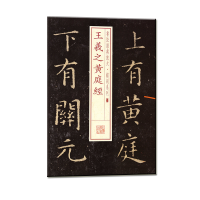 上有黃庭
下有關元
王羲之黄庭經